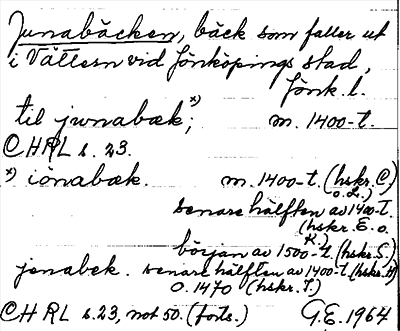 Junabäcken, bäck som faller ut
i Vättern vid Jönköpings stad,
Jönk. l.
til jwnabæk *); m. 1400-t.
CHRL s. 23.
*) iönabæk. m. 1400-t. (hskr. C)
senare hälften av 1400-t.
(hskr. E. o. L.)
början av 1500-t. (hskr. S.)
jenabek. senare hälften av 1400-t. (hskr. H)
o. 1470 (hskr. T.)
CHRL s. 23, not 50. (forts.) G.E. 1964